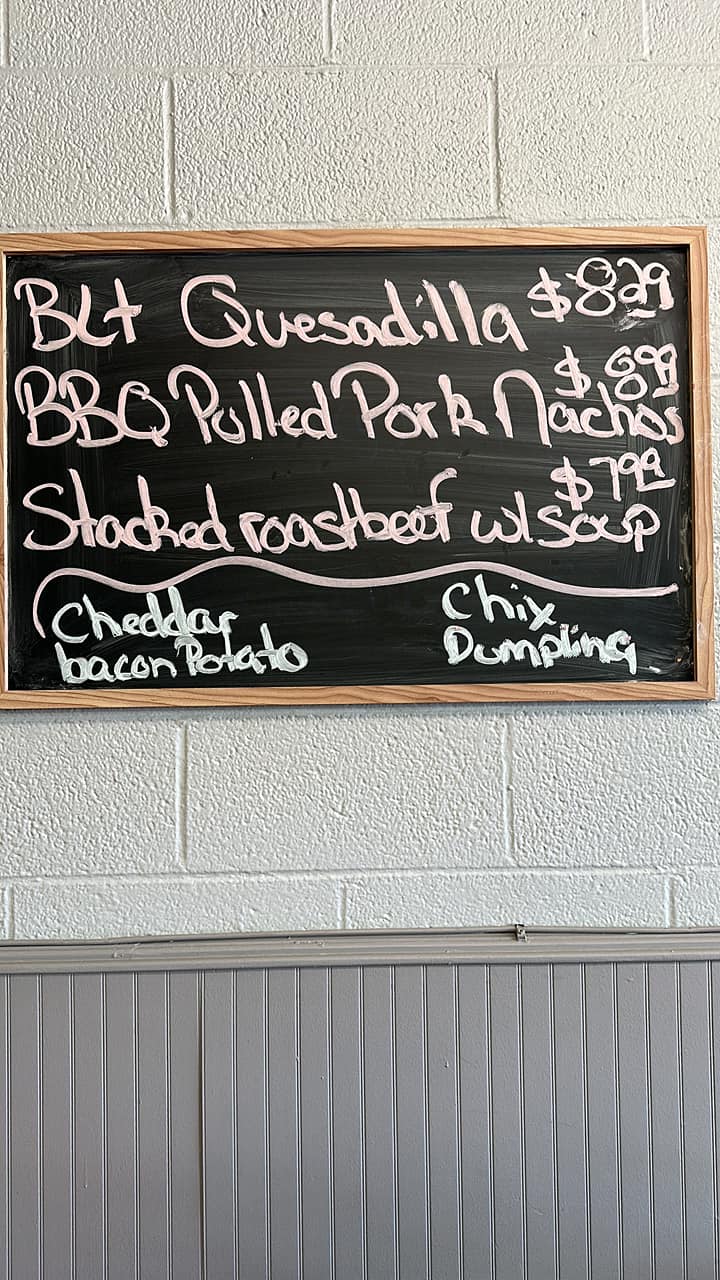 BLt Quesadilla $829
BBQ Pulled Pork Nachos $899
Stacked roastbeef w/ Soup $799
Cheddar
bacon Potato
Chix
Dumpling